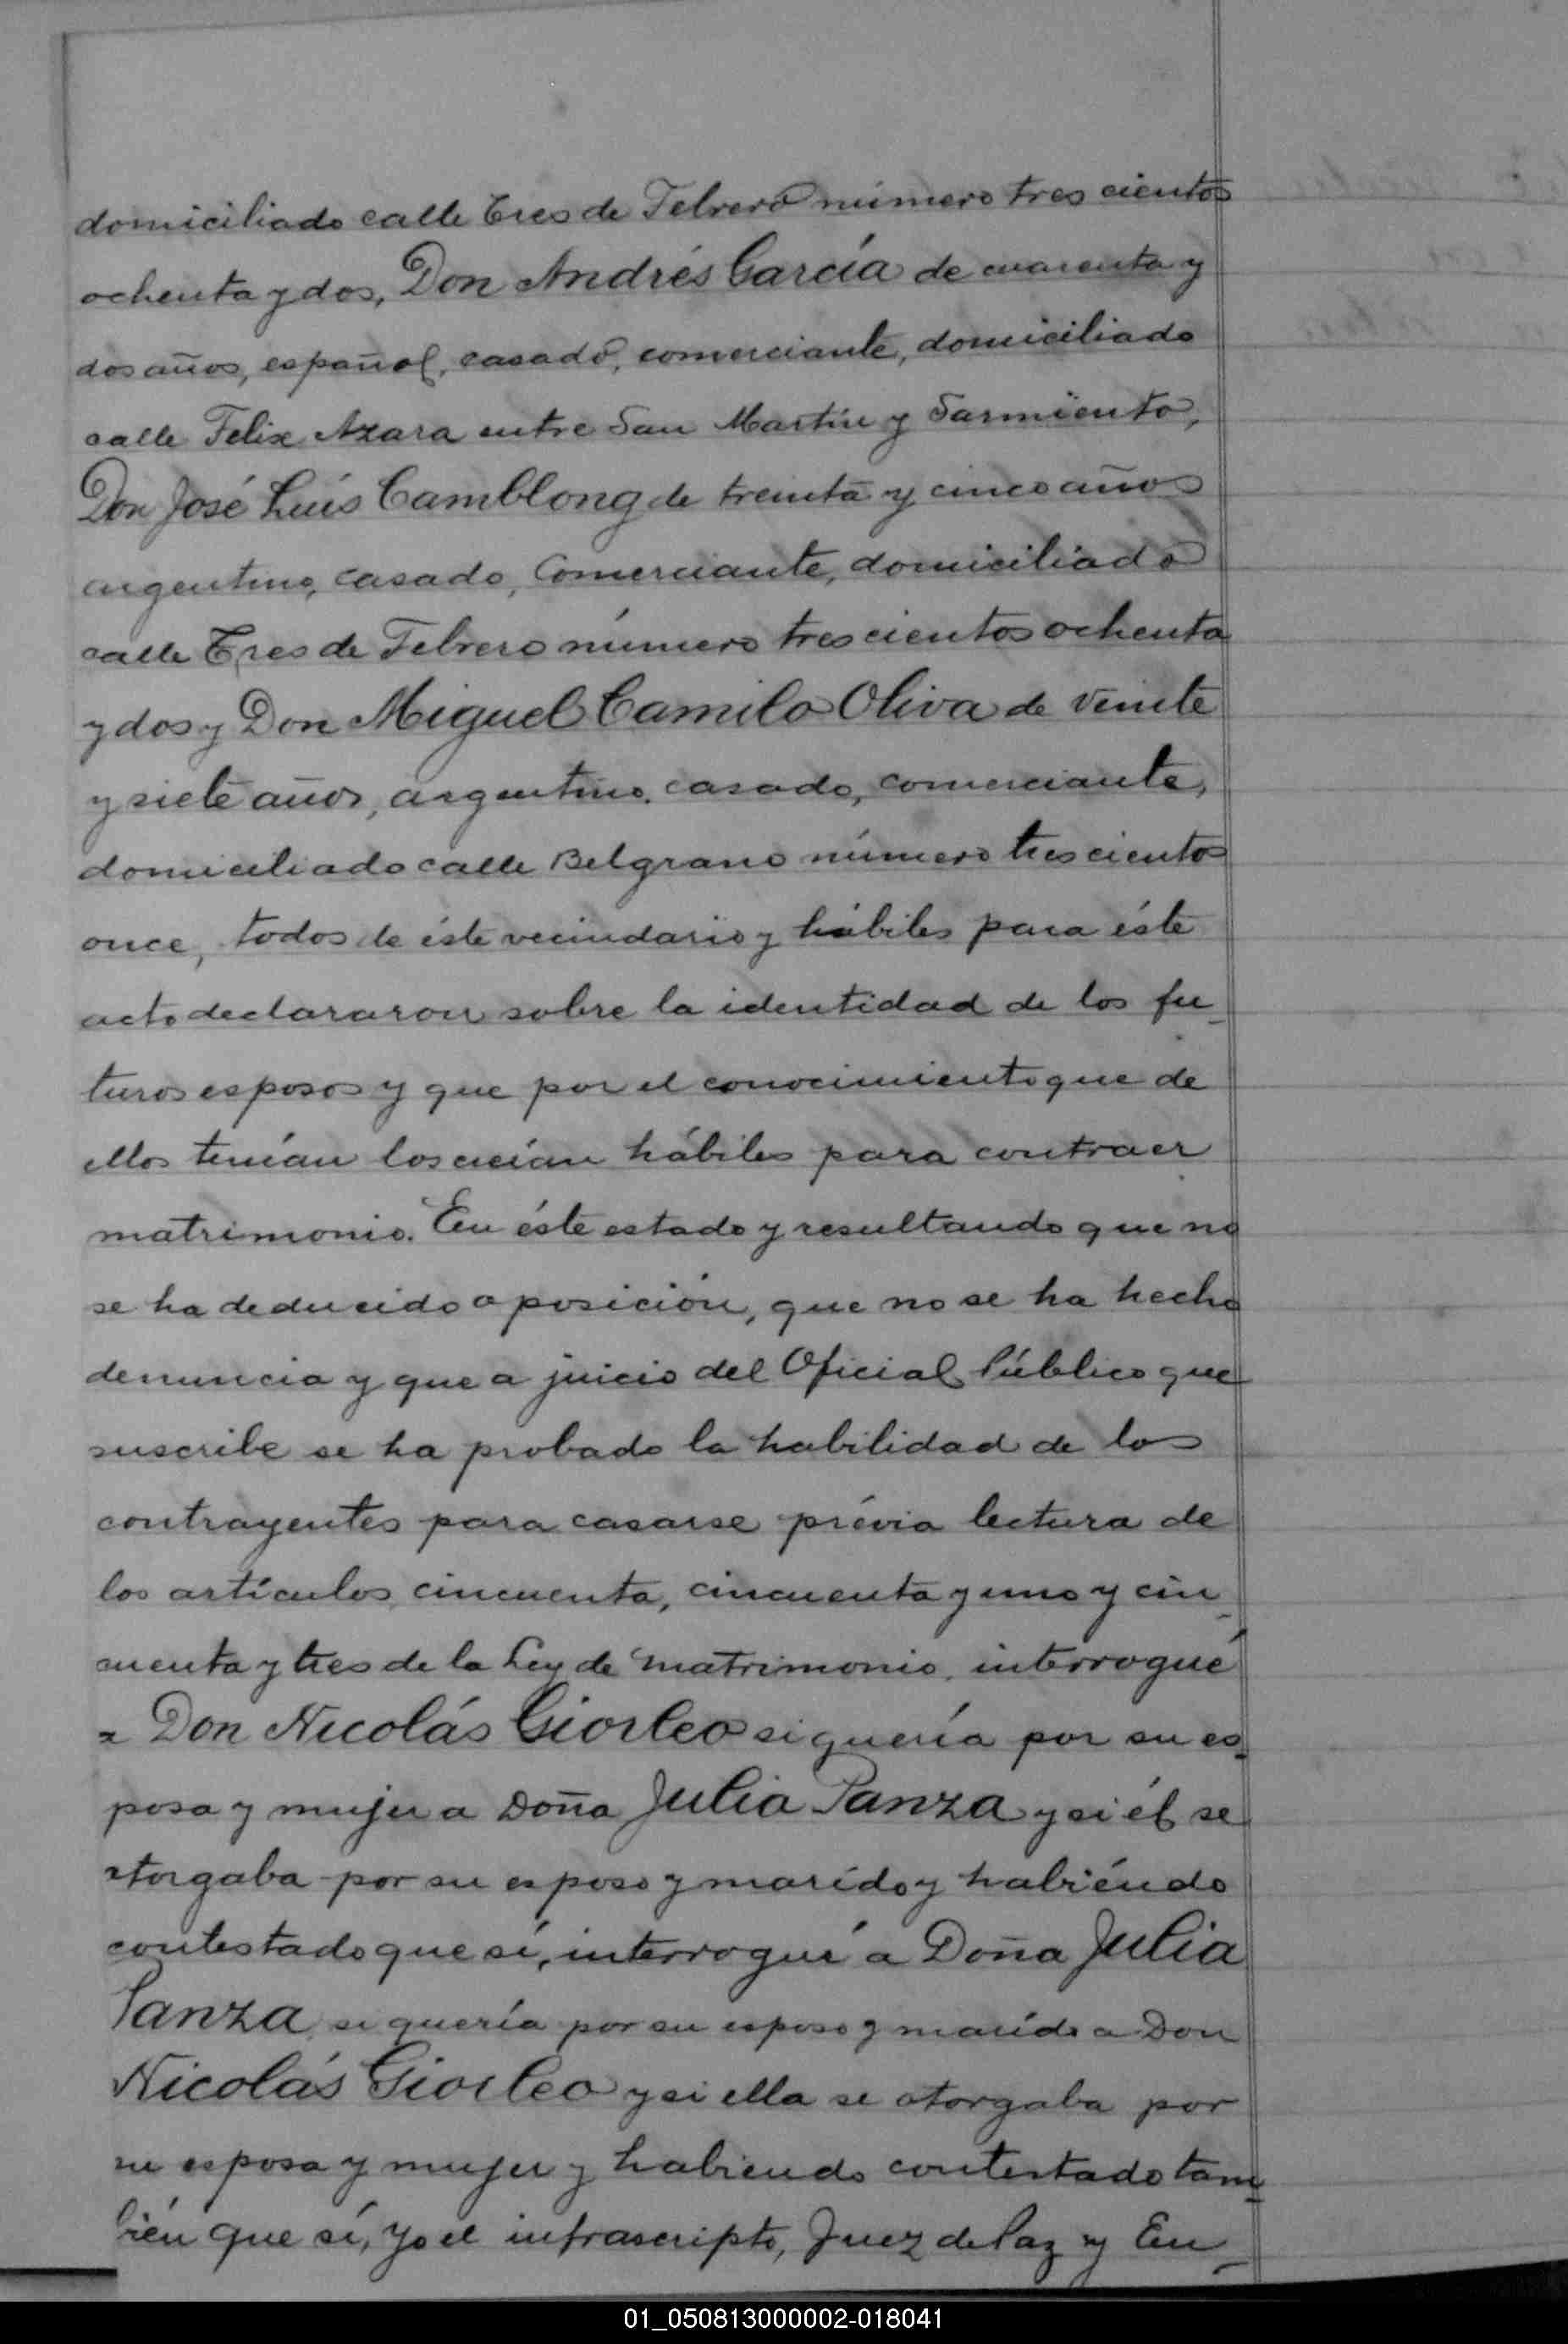 domiciliado calle Tres de Febrero número tres cientos
ochenta y dos, Don Andrés García de cuarenta y
dos años, español, casado, comerciante, domiciliado
calle Felix Azara entre San Martín y Sarmiento,
Don José Luís Camblong de treinta y cinco años
argentino, casado, Comerciante, domiciliado
calle Tres de Febrero número tres cientos ochenta
y dos y Don Miguel Camilo Oliva de veinte
y siete años, argentino, casado, comerciante,
domiciliado calle Belgrano número tres cientos
once, todos de éste vecindario y hábiles para éste
acto declararon sobre la identidad de los fu_
turos esposos y que por el conocimiento que de
ellos tenían los creían hábiles para contraer
matrimonio. En éste estado y resultando que no
se ha deducido oposición, que no se ha hecho
denuncia y que a juicio del Oficial Público que
suscribe se ha probado la habilidad de los
contrayentes para casarse prévia lectura de
los artículos cincuenta, cincuenta y uno y cin_
cuenta y tres de la Ley de matrimonio, interrogué
a Don Nicolás Giorleo si quería por su es_
posa y mujer a Doña Julia Panza y si él se
otorgaba por su esposo y marído y habiéndo
contestado que sí, interrogué a Doña Julia
Panza si quería por su esposo y marído a Don
Nicolás Giorleo y si ella se otorgaba por
su esposa y mujer y habiendo contestado tam_
bién que sí, Yo el infrascripto, Juez de Paz y En_
01_050813000002-018041